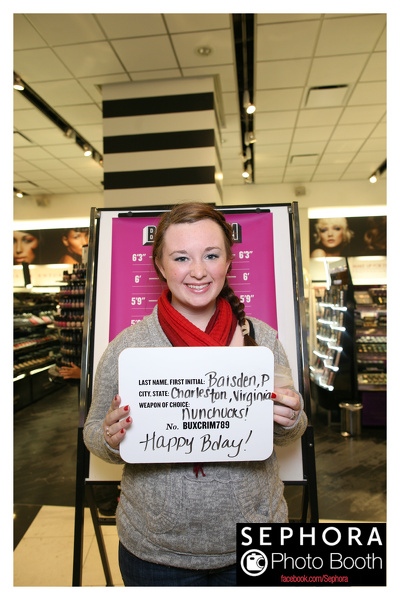 6'3" 6'3"
6' 6'
5'9" 5'9"
LAST NAME, FIRST INITIAL: Baisden, P
CITY, STATE: Charleston, Virginia
WEAPON OF CHOICE: nunchucks!
No. BUXCRIM789
Happy Bday!
SEPHORA
Photo Booth
facebook.com/Sephora